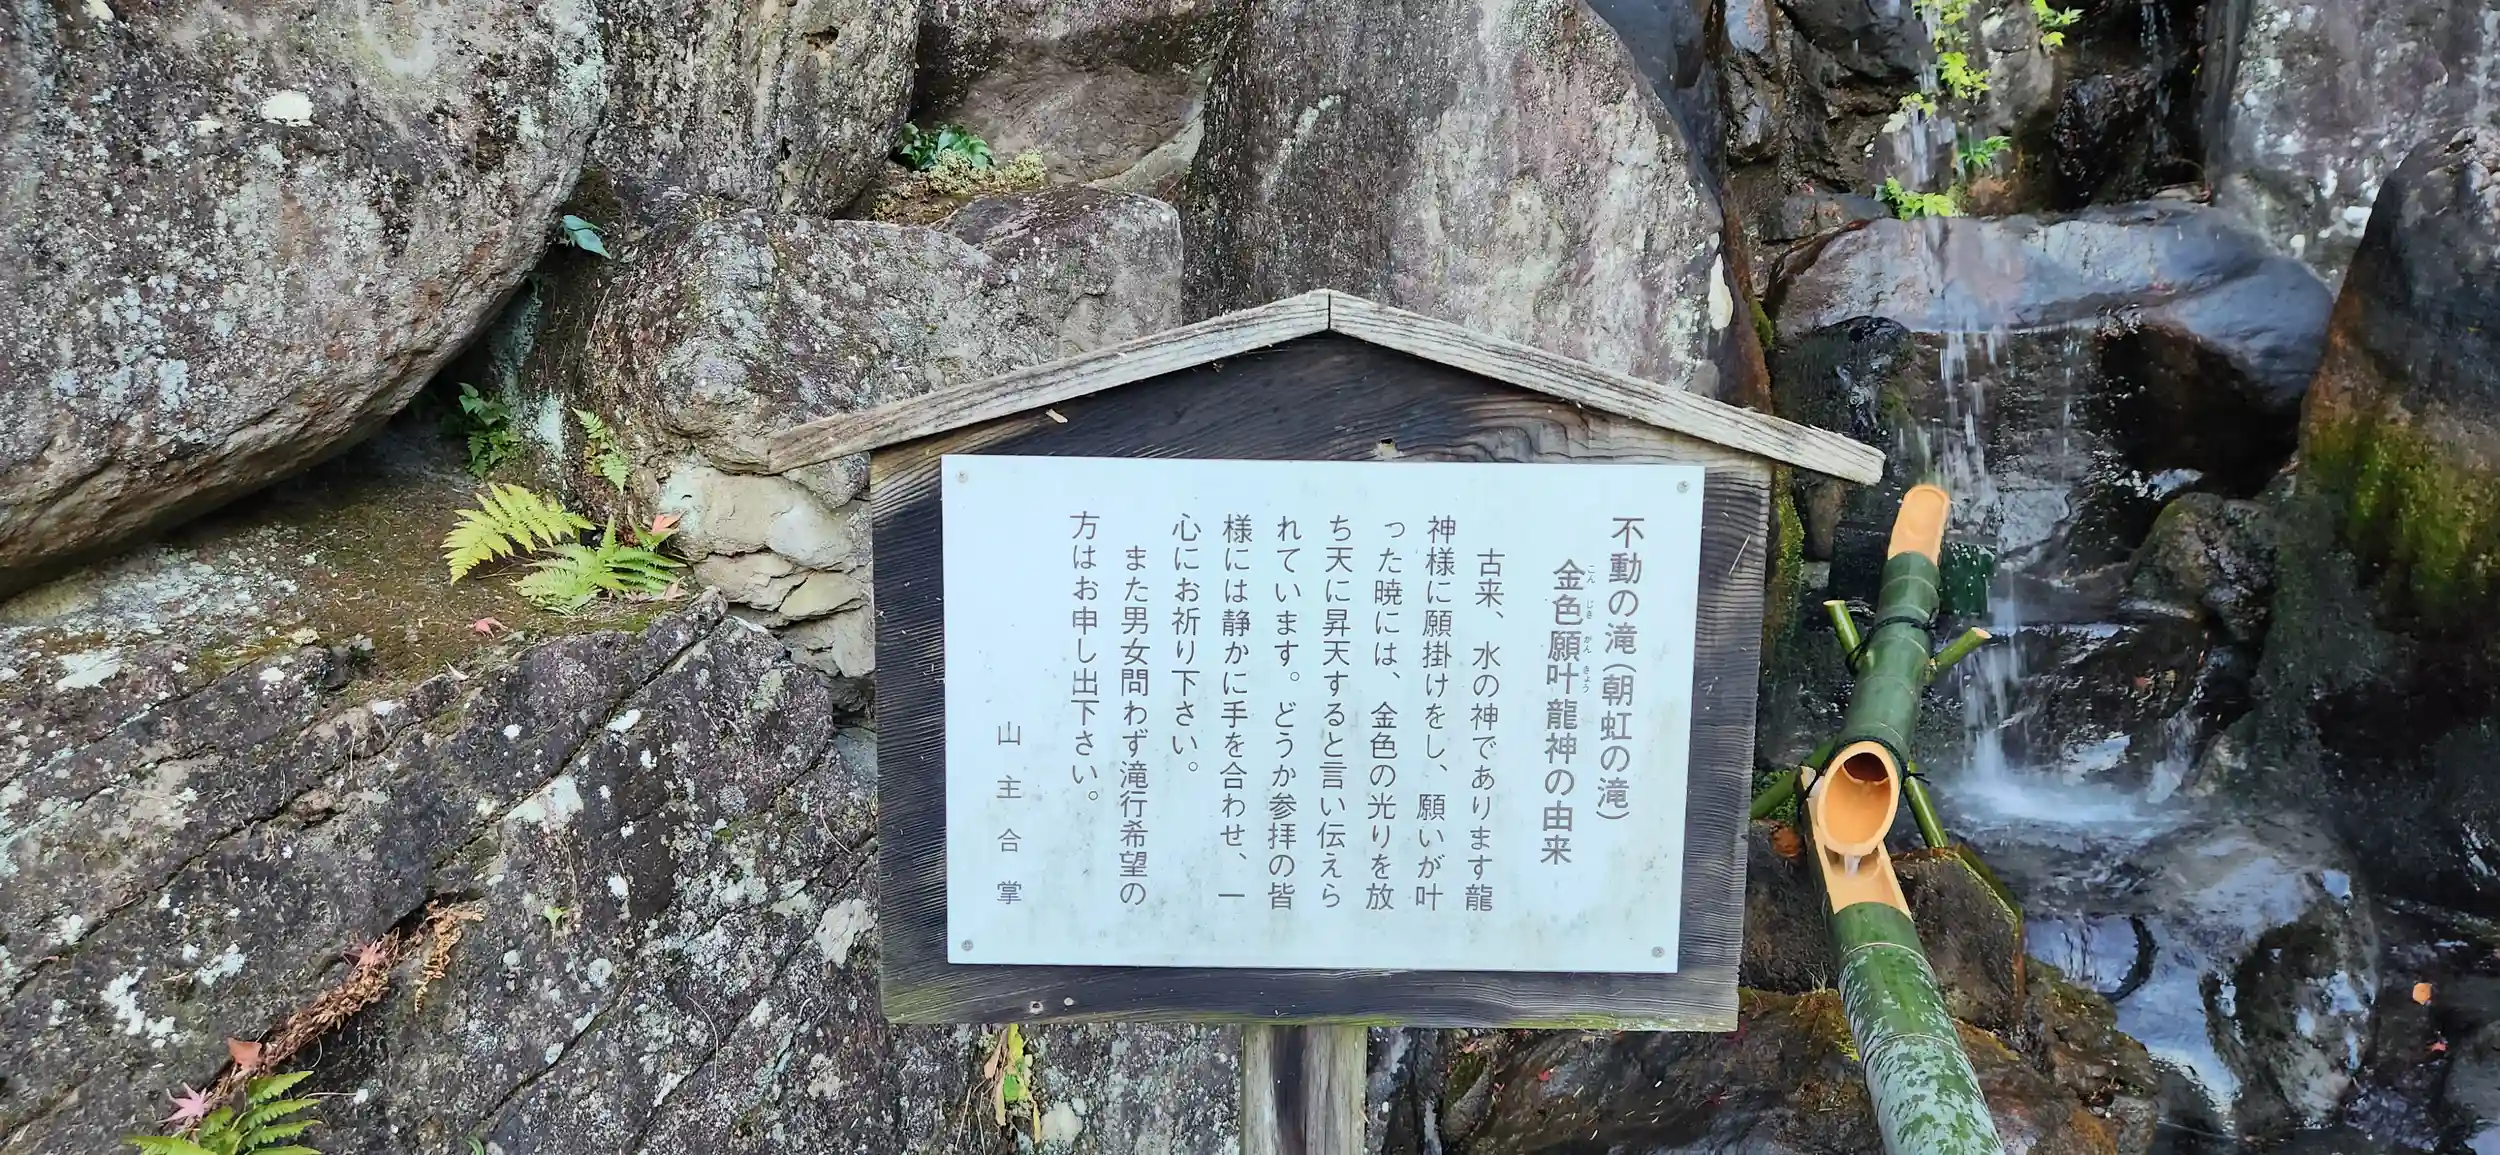 不動の滝(朝虹の滝)
金色願叶龍神の由来
こんじきがんきょう
古来、水の神であります龍
神様に願掛けをし、願いが叶
った暁には、金色の光りを放
ち天に昇天すると言い伝えら
れています。どうか参拝の皆
様には静かに手を合わせ、一
心にお祈り下さい。
また男女問わず滝行希望の
方はお申し出下さい。
山主合掌